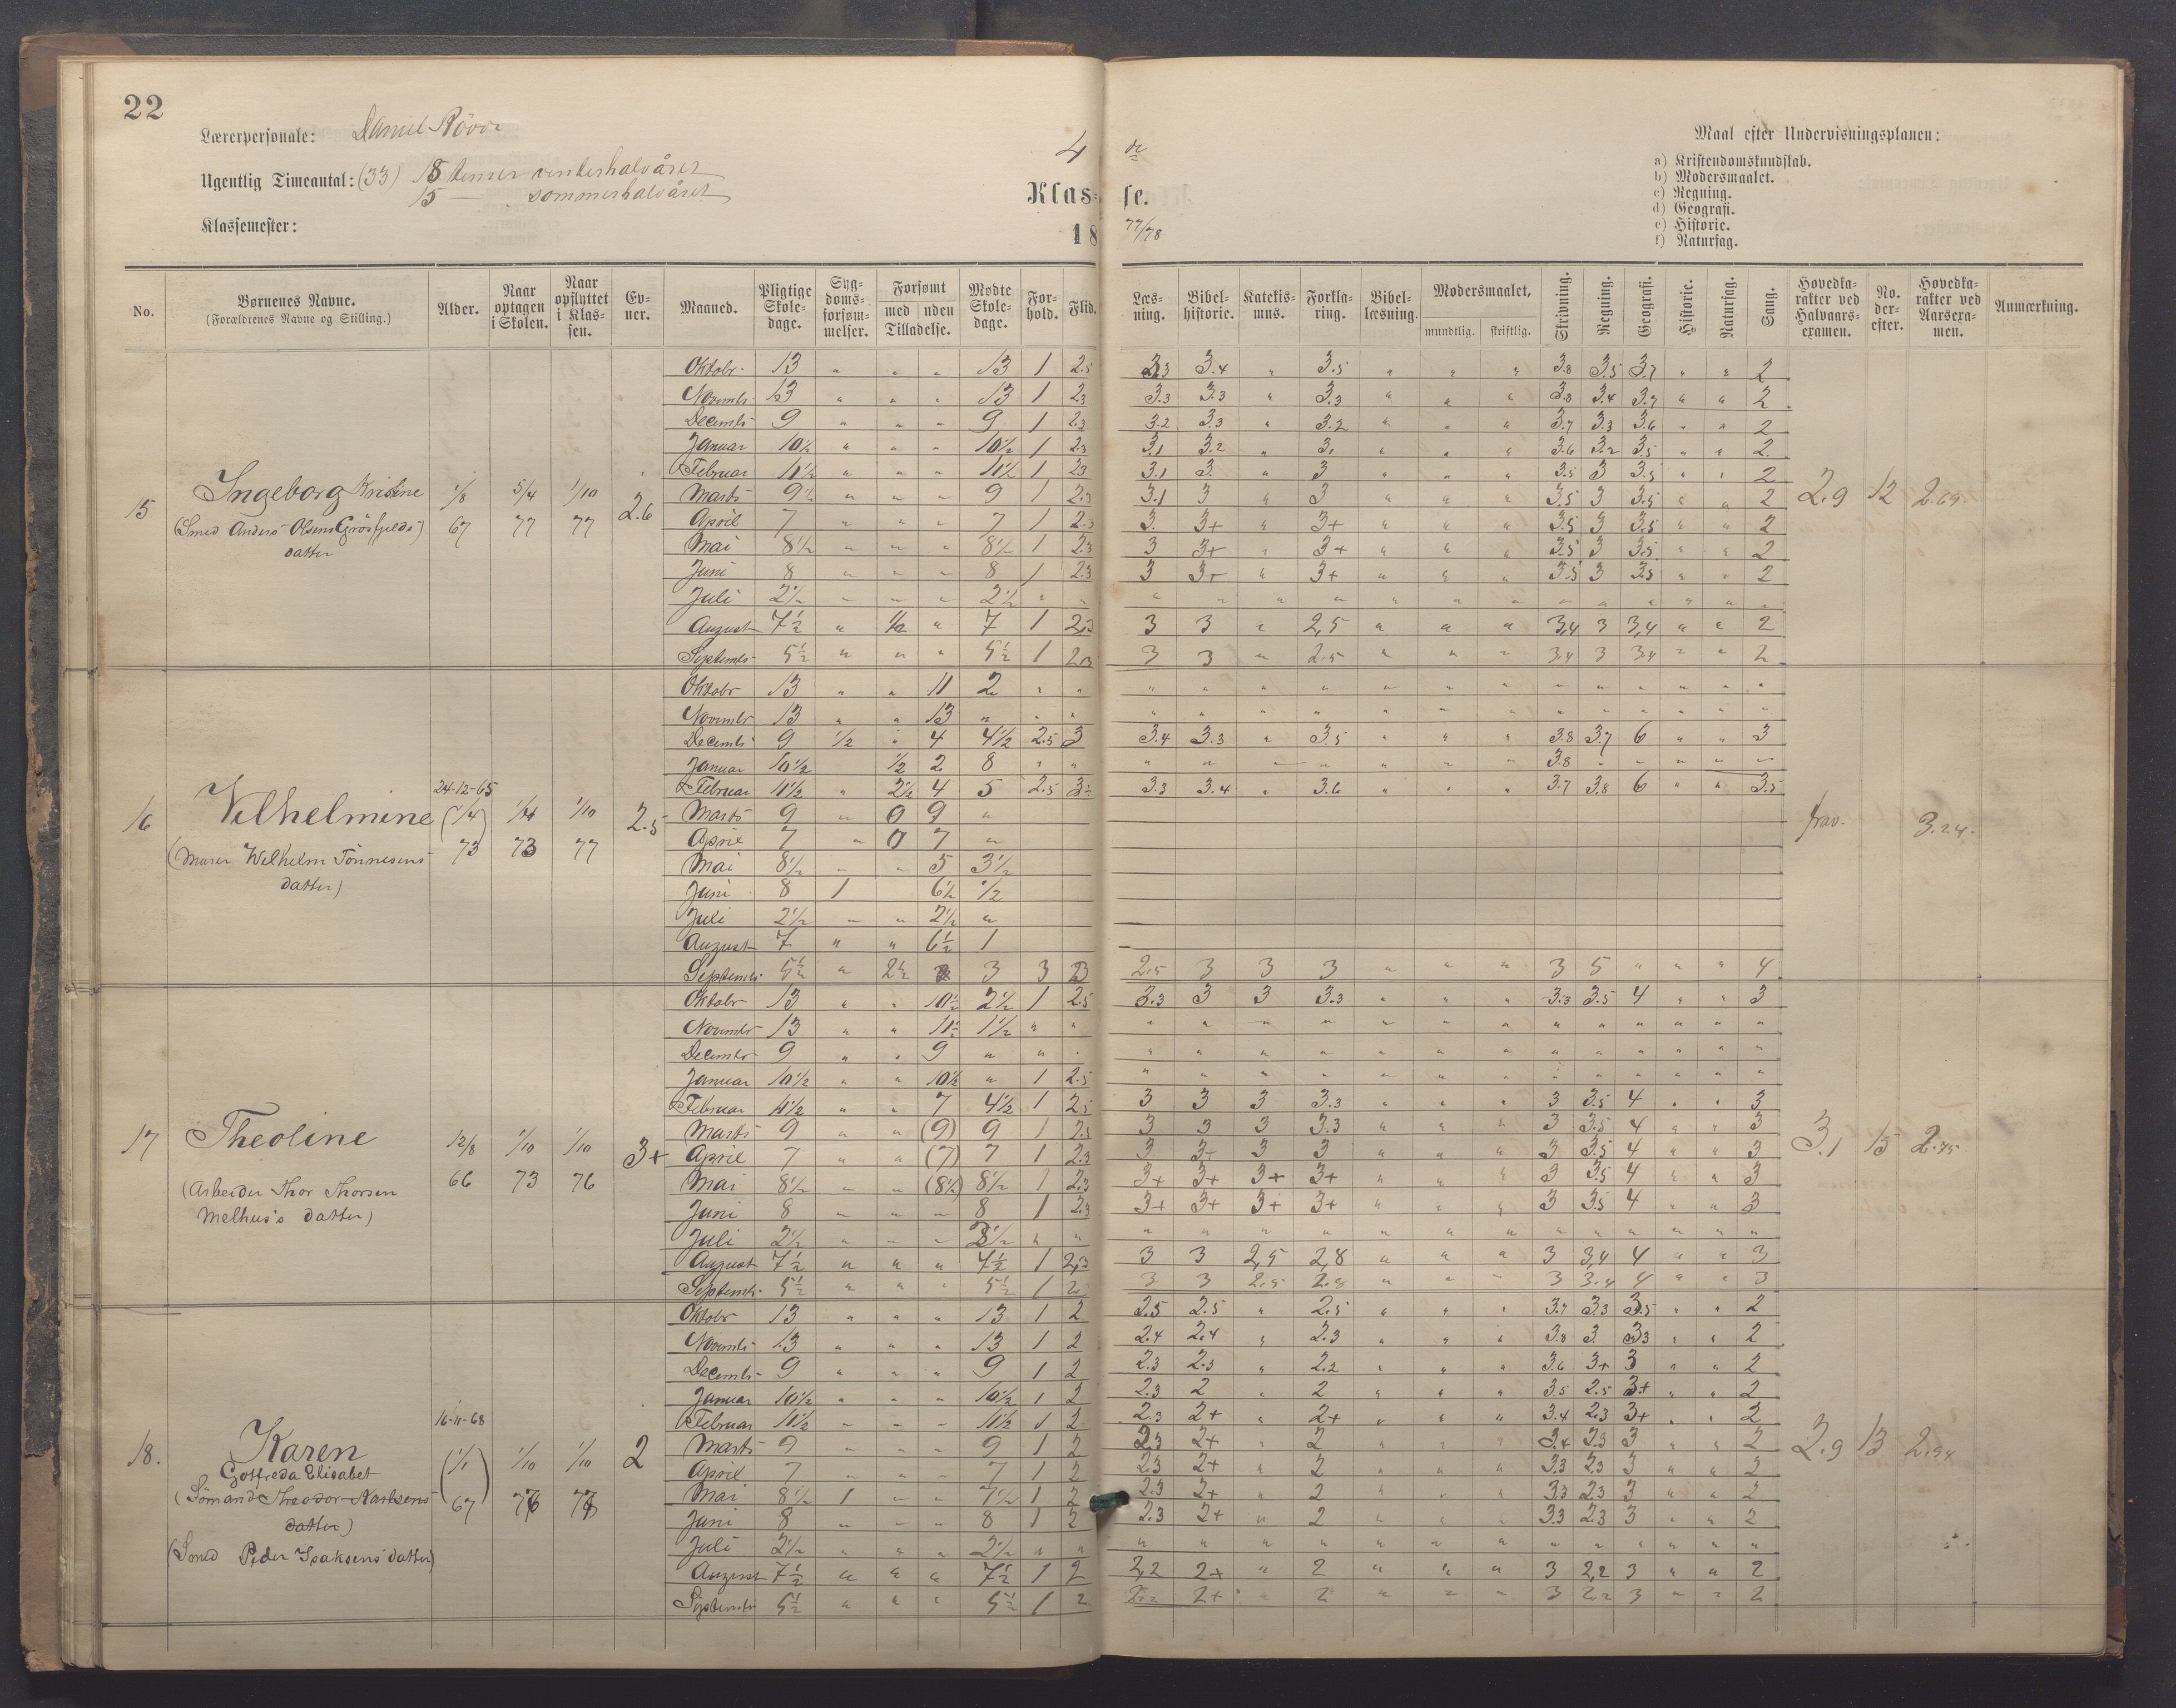 22
Lærerpersonale: Daniel
Ugentlig Timeantal: (33) 18 timer vinterhalvåret
15 — sommerhalvåret
Klassemester:
4 de
Klasse.
1877/78
Maal efter Undervisningsplanen:
a) Kristendomskundskab.
b) Modersmaalet.
c) Regning.
d) Geografi.
e) Historie.
f) Naturfag.
No. Børnenes Navne. (Forældrenes Navne og Stilling.) Alder. Naar optagen i Skolen. Naar opflyttet i Klassen. Evner. Maaned. Pligtige Skoledage. Sygdomsforsømmelser. Forsømt med uden Tilladelse. Mødte Skoledage. Forhold. Flid. Læsning. Bibelhistorie. Katekismus. Forklaring. Bibellæsning. Modersmaalet, mundtlig. skriftlig. Skrivning. Regning. Geografi. Historie. Naturfag. Sang. Hovedkarakter ved Halvaarsexamen. No. derefter. Hovedkarakter ved Aarsexamen. Anmærkning.
15 Ingeborg Kristine 1/8 67 5/4 77 1/10 77 2.6
(Smed Anders Olsens Grösfjelds datter)
Oktobr 13 " " " 13 1 2.5 3.4 " 3.5 " " " 3.8 3.5 3.7 " " 2
Novembr 13 " " " 13 1 2.3 3.3 3.3 " 3.3 " " " 3.8 3.4 3.7 " " 2
Decembr 9 " " " 9 1 2.3 3.2 3.3 " 3.2 " " " 3.7 3.3 3.6 " " 2
Januar 10½ " " " 10½ 1 2.3 3.1 3.2 " 3. " " " 3.6 3.2 3.5 " " 2
Februar 11½ " " " 11½ 1 2.3 3.1 3. " 3 " " " 3.5 3 3.5 " " 2
Marts 9½ " " " 9 1 2.3 3.1 3 " 3 " " " 3.5 3 3.5 " " 2 2.9 12 2.69
April 7 " " " 7 1 2.3 3. 3+ " 3+ " " " 3.5 3 3.5 " " 2
Mai 8½ " " " 8½ 1 2.3 3 3+ " 3+ " " " 3.5 3 3.5 " " 2
Juni 8 " " " 8 1 2.3 3 3+ " 3+ " " " 3.5 3 3.5 " " 2
Juli 2½ " " " 2½ " " " " " " " " " " " " " " "
August 7½ " ½ " 7 1 2,3 3 3 " 2,5 " " " 3,4 3 3,4 " " 2
Septembr 5½ " " " 5½ 1 2.3 3 3 " 2.5 " " " 3.4 3 3.4 " " 2
16 Vilhelmine 24-12-65 (1/4) 73 73 1/10 77 2.5
(Murer Wilhelm Tönnesens datter)
Oktobr 13 " " 11 2 " " " " " " " " " " " " " " "
Novembr 13 " " 13 " " " " " " " " " " " " " " " "
Decembr 9 1/2 " 4 4½ 2.5 3 3.4 3.3 " 3.5 " " " 3.8 3.7 6 " " 3
Januar 10½ ½ 2 8 " " " " " " " " " 3.8 " " " " "
Februar 11½ " 2½ 4 5 2.5 3.3 3.4 " 3.6 " " " 3.7 3.8 6 " " 3.5
Marts 9 " 0 9 " frav. 3.24.
April 7 " 0 7 "
Mai 8½ " " 5 3½
Juni 8 1 6½ ½
Juli 2½ " " 2½ "
August 7 " " 6½ 1
Septembr 5½ " 2½ 3 3 3 2.5 3 3 3 " " " 3 5 " " " 4
17 Theoline 12/8 66 1/10 73 1/10 76 3+
(Arbeider Thor Thorsen Melhus's datter)
Oktobr 13 " " 10½ 2½ 1 2.5 3.3 3 3 3.3 " " " 3.3 3.5 4 " " 3
Novembr 13 " " 11½ 1½ " " " " " " " " " " " " " " "
Decembr 9 " " 9 " " " " " " " " " " " " " " " "
Januar 10½ " " 10½ " 1 2.5 " " " " " " " " " " " " "
Februar 11½ " " 7 4½ 1 2.5 3 3 3 3.3 " " " 3 3.5 4 " " 3
Marts 9 " " (9) 9 1 2.3 3 3 3 3.3 " " " 3 3.5 4 " " 3 3.1 15 2.75
April 7 " " (7) 7 1 2.3 3 3+ 3 3 " " " 3 3.5 4 " " 3
Mai 8½ " " (8½) 8½ 1 2.3 3+ 3+ 3+ 3+ " " " 3 3.5 4 " " 3
Juni 8 " " " 8 1 2.3 3+ 3+ 3+ 3+ " " " 3 3.5 4 " " 3
Juli 2½ " " " 2½ " " " " " " " " " " " " " " "
August 7½ " " " 7½ 1 2,3 3 3 2,5 2,8 " " " 3 3,4 4 " " 3
Septembr 5½ " " " 5½ 1 3 3 2.5 2.8 " " " 3 3.4 4 " " 3
18. Karen Gotfreda Elisabet 16-11-68 (1/1) 67 1/10 1/10 2
(Sömand Theodor Karlsens datter)
(Smed Peder Isaksens datter)
Oktobr 13 " " " 13 1 2 2.5 2.5 " 2.5 " " " 3.7 3.3 3.5 " " 2
Novembr 13 " " " 13 1 2 2.4 2.4 " 2.3 " " " 3.8 3 3.3 " " 2
Decembr 9 " " " 9 1 2 2.3 2.3 " 2.2 " " " 3.6 3+ 3 " " 2
Januar 10½ " " " 10½ 1 2 2.3 2 " 2 " " " 3.5 2.5 3+ " " 2
Februar 11½ " " " 11½ 1 2 2.3 2+ " 2+ " " " 3.4 2.3 3+ " " 2
Marts 9 " " " 9 1 2 2.3 2+ " 2 " " " 3.4 2.3 3 " " 2 2.9 13 2.94
April 7 " " " 7 1 2 2.3 2+ " 2 " " " 3.3 2.3 3 " " 2
Mai 8½ 1 " " 7½ 1 2 2.3 2+ " 2 " " " 3.3 2.3 3 " " 2
Juni 8 " " " 8 1 2 2.3 2+ " 2 " " " 3.3 2.3 3 " " 2
Juli 2½ " " " 2½ " " " " " " " " " " " " " " "
August 7½ " " " 7½ 1 2 2,2 2+ " 2 " " " 3 2,2 3 " " 2
Septembr 5½ " " " 5½ 1 2 2.2 2+ " 2 " " " 3 2.2 3 " " 2